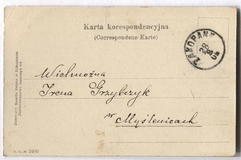 Karta korespondencyjna
(Correspondenz-Karte)
ZAKOPANE
Wielmożna
Irena Grzybczyk
w Myślenicach